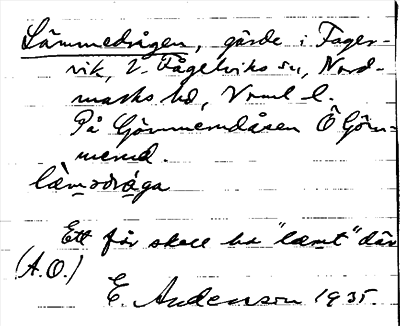 Lämmedrågen, gärde i Fager-
vik, V. Fågelviks sn, Nord-
marks hd, Vrml l.
På Gömmerudåsen Ö Göm-
merud.
lämədråga
Ett får skall ha "lamt" där
(A.O.)
E. Andersson 1935.